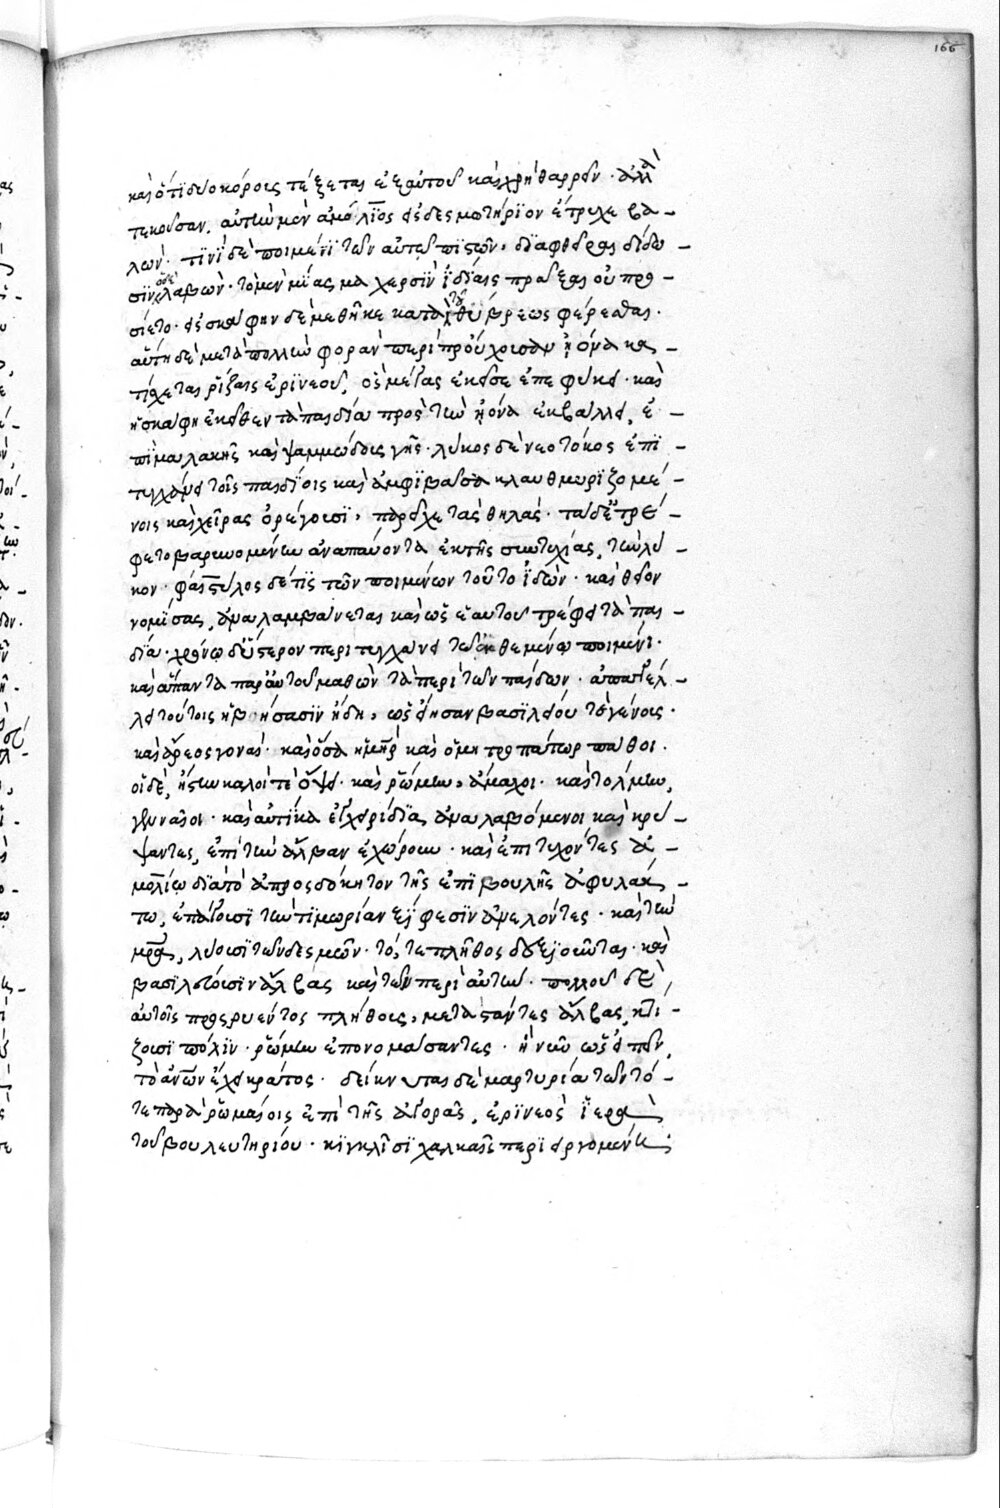 166
καὶ ὅτι δύο κόρους τέξεται ἐξ αὐτοῦ καὶ χρὴ θαρρεῖν· ἀλλὰ
τεκοῦσαν, αὐτὴν μὲν ἀμόλιος ἐς δεσμωτήριον ἔτρεχε βα-
λών· τινὶ δὲ ποιμένι τῶν αὐτοῦ πιστῶν, διαφθεῖραι δίδω-
σιν. ὁ δὲ λαβὼν· τὸ μὲν μιᾶναι χερσὶν ἰδίαις πρᾶξαι οὐ προ-
σίετο· ἐς σκάφην δὲ μεθῆκε κατὰ τοῦ θύβρεως φέρεσθαι.
αὕτη δὲ μετὰ πολλὴν φορὰν περὶ προύχουσαν ἠϊόνα κα-
τίσχεται ῥίζαις ἐρινεοῦ, ὃς μέγας ἐκεῖσε ἐπεφύκει· καὶ
ἡ σκάφη ἐκεῖθεν τὰ παιδία πρὸς τὴν ἠϊόνα ἐκβάλλει, ἐ-
πὶ μαλακῆς καὶ ψαμμώδους γῆς· λύκος δὲ νεοτόκος ἐπι-
τυγχάνει τοῖς παιδίοις καὶ ἀμφιβᾶσα κλαυθμυριζομέ-
νοις καὶ χεῖρας ὀρέγουσι, παρεῖχε τὰς θηλάς· τὰ δὲ ἐτρέ-
φετο βαρυνομένην ἀναπαύοντα ἐκ τῆς συντυχίας, τὴν λύ-
κον· φαίστυλος δέ τις τῶν ποιμένων τοῦτο ἰδὼν· καὶ θεῖον
νομίσας, ἀναλαμβάνεται καὶ ὡς ἑαυτοῦ τρέφει τὰ παι-
δία· χρόνῳ δ' ὕστερον περιτυγχάνει τῷ ἐκθεμένῳ ποιμένι·
καὶ ἅπαντα παρ' αὐτοῦ μαθὼν τὰ περὶ τῶν παίδων· ἀπαγγέλ-
λει τούτοις ἡβήσασιν ἤδη, ὡς εἴησαν βασιλείου τε γένους·
καὶ ἄρεος γοναί· καὶ ὅσα ἡ μήτηρ καὶ ὅ μητροπάτωρ πάθοι.
οἱ δὲ, ἤστην καλοί τε ὄψει· καὶ ῥώμην, ἄμαχοι· καὶ τόλμην,
γενναῖοι· καὶ αὐτίκα ἐγχειρίδια, ἀναλαβόμενοι καὶ κρύ-
ψαντες, ἐπὶ τὴν ἄλβαν ἐχώρουν· καὶ ἐπιτυχόντες ἀ-
μολίῳ διὰ τὸ ἀπροσδόκητον τῆς ἐπιβουλῆς ἀφυλάκ-
τῳ, ἐπάγουσι τὴν τιμωρίαν ξίφεσιν ἀνελόντες· καὶ τὴν
μητέρα, λύουσι τῶν δεσμῶν· τό, τε πλῆθος δεξιοῦνται· καὶ
βασιλεύουσιν ἄλβας καὶ τῶν περὶ αὐτήν· πολλοῦ δὲ
αὐτοῖς προσρυέντος πλήθους, μεταστάντες ἄλβας, κτί-
ζουσι πόλιν· ῥώμην ἐπονομάσαντες· ἣ νῦν ὡς εἰπεῖν,
τὸ ἀνθρώπων ἔχει κράτος· δείκνυται δὲ μαρτυρία τῶν τό-
τε παρὰ ῥωμαίοις ἐπὶ τῆς ἀγορᾶς, ἐρινεὸς ἱερὰ
τοῦ βουλευτηρίου· κιγκλίσι χαλκαῖς περιειργομένη: